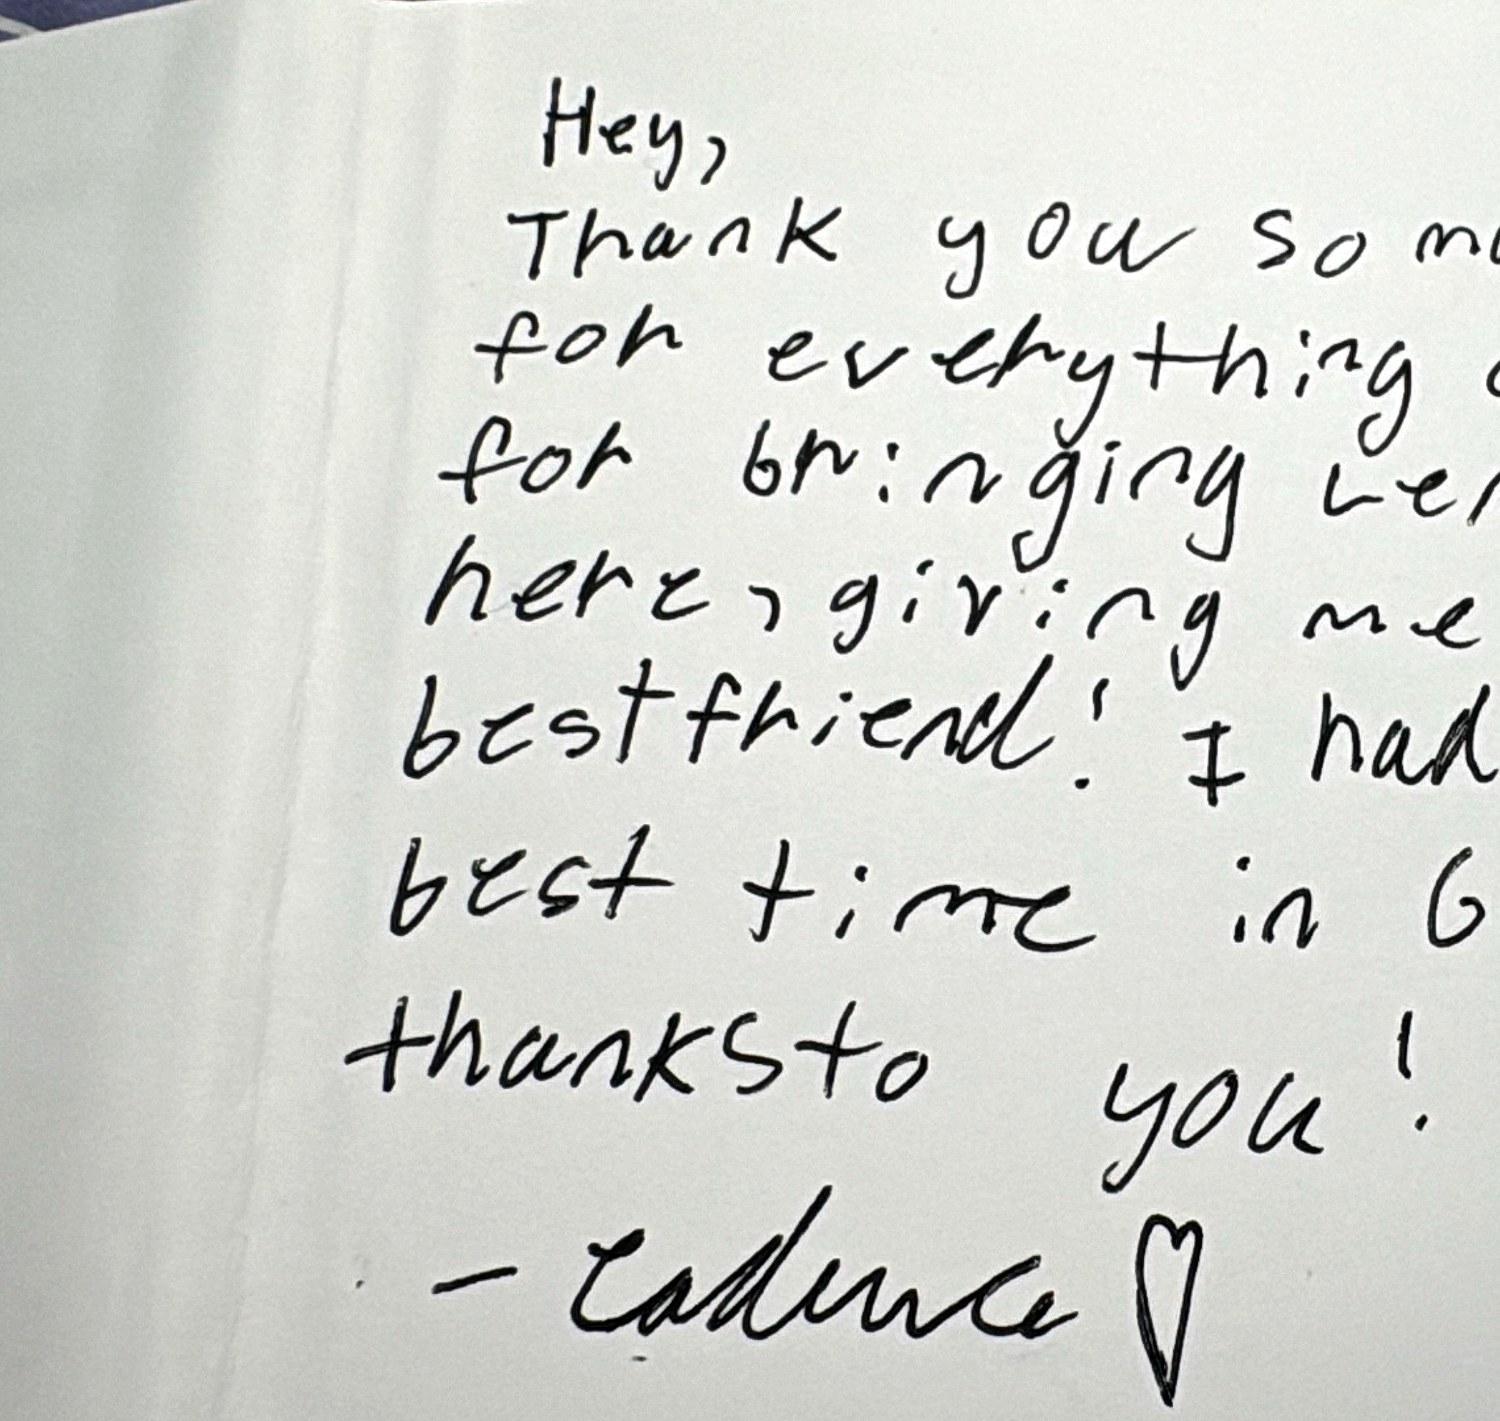 Hey,
Thank you so
for everything
for bringing
here, giving me
bestfriend! I had
best time in
thanksto you!
- Cadence